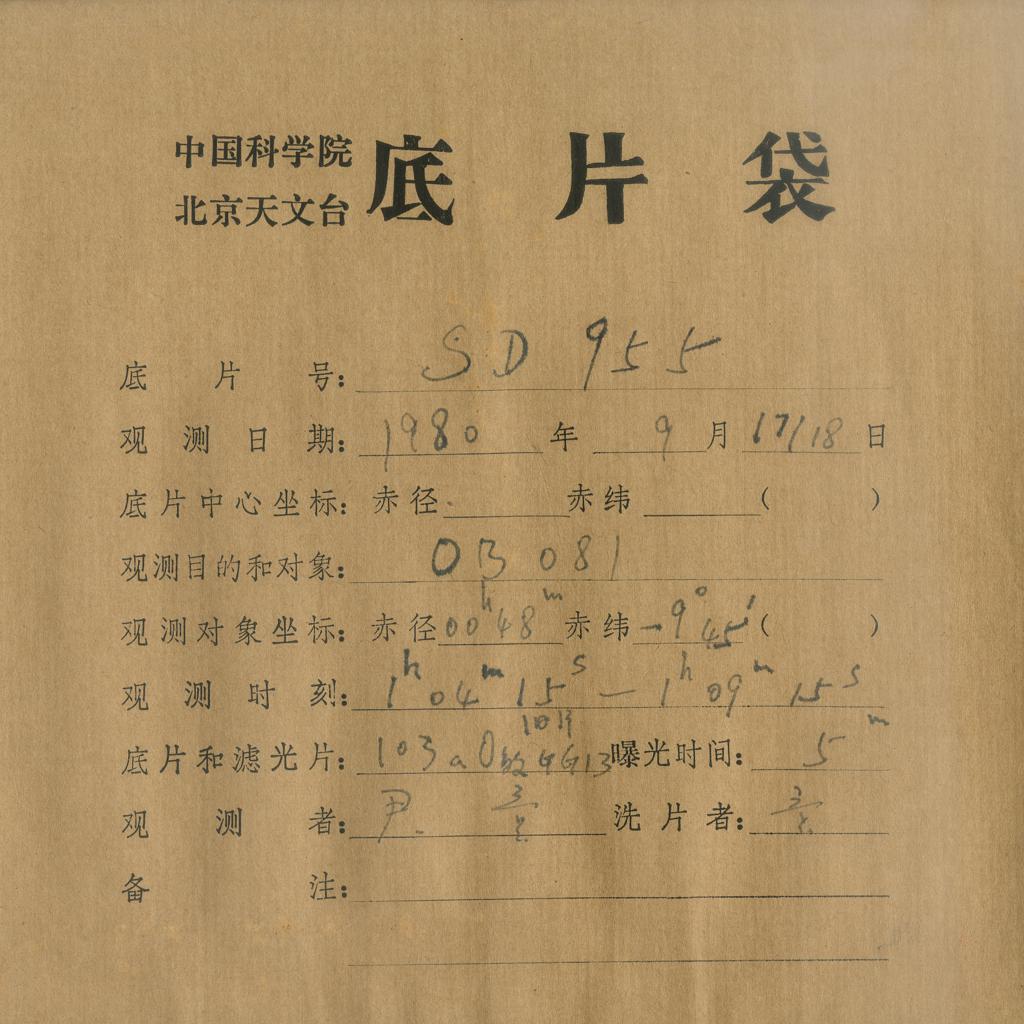 中国科学院
北京天文台
底片袋
底片号: SD 955
观测日期: 1980 年 9 月 17/18 日
底片中心坐标: 赤径 赤纬 ( )
观测目的和对象: OB 081
观测对象坐标: 赤径 00h48m 赤纬 -9°45′ ( )
观测时刻: 1h04m15s — 1h09m15s
底片和滤光片: 103aO GG13 曝光时间: 5m
观测者: 尹 洗片者:
备注: